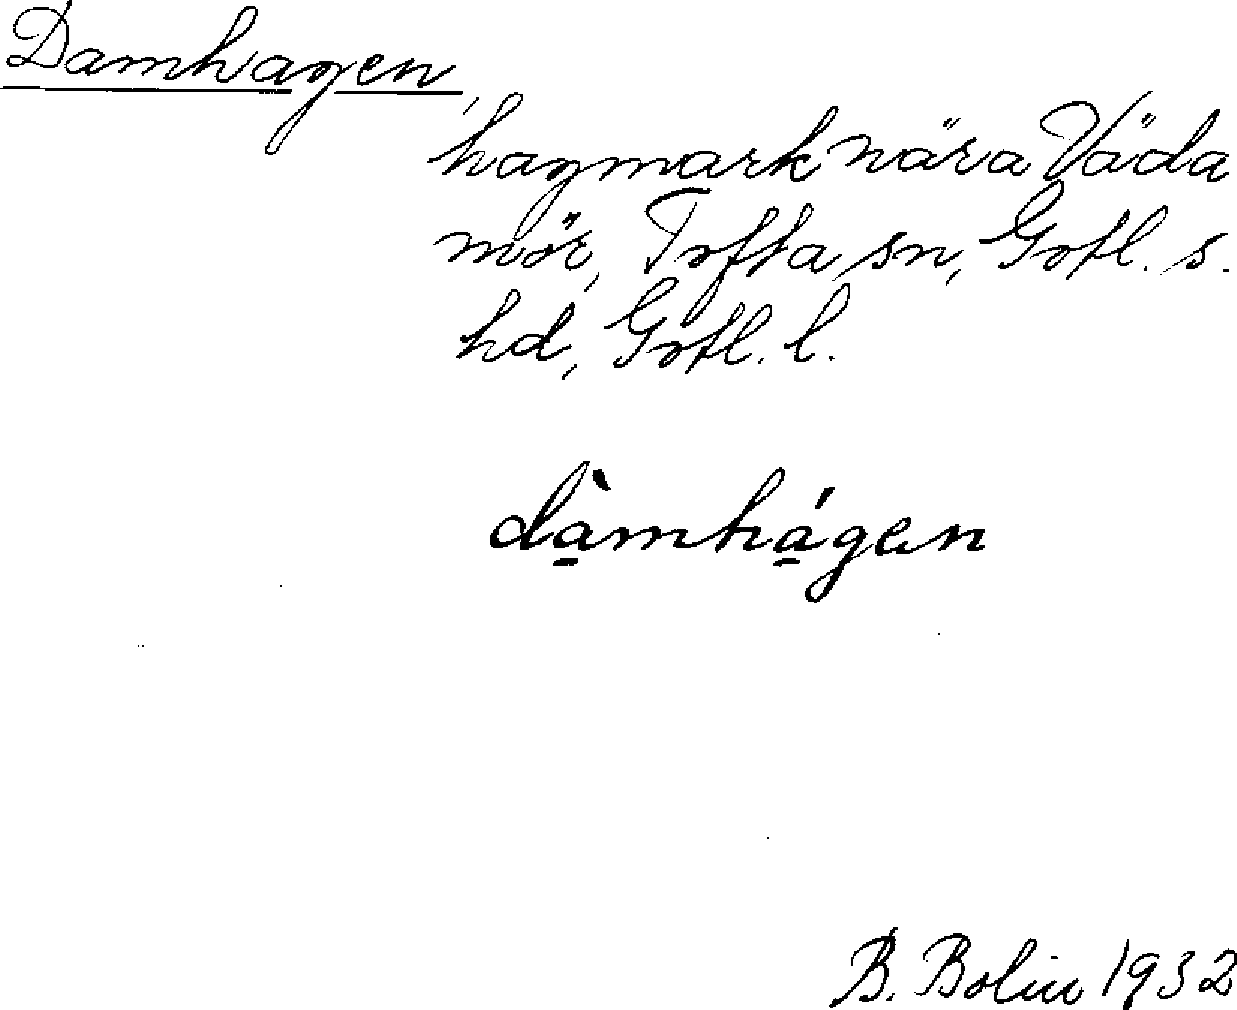 Damhagen,
hagmark nära Väda
mör, Tofta sn, Gotl. s.
hd, Gotl. l.
dà̱mhá̱gen
B. Bolin 1932